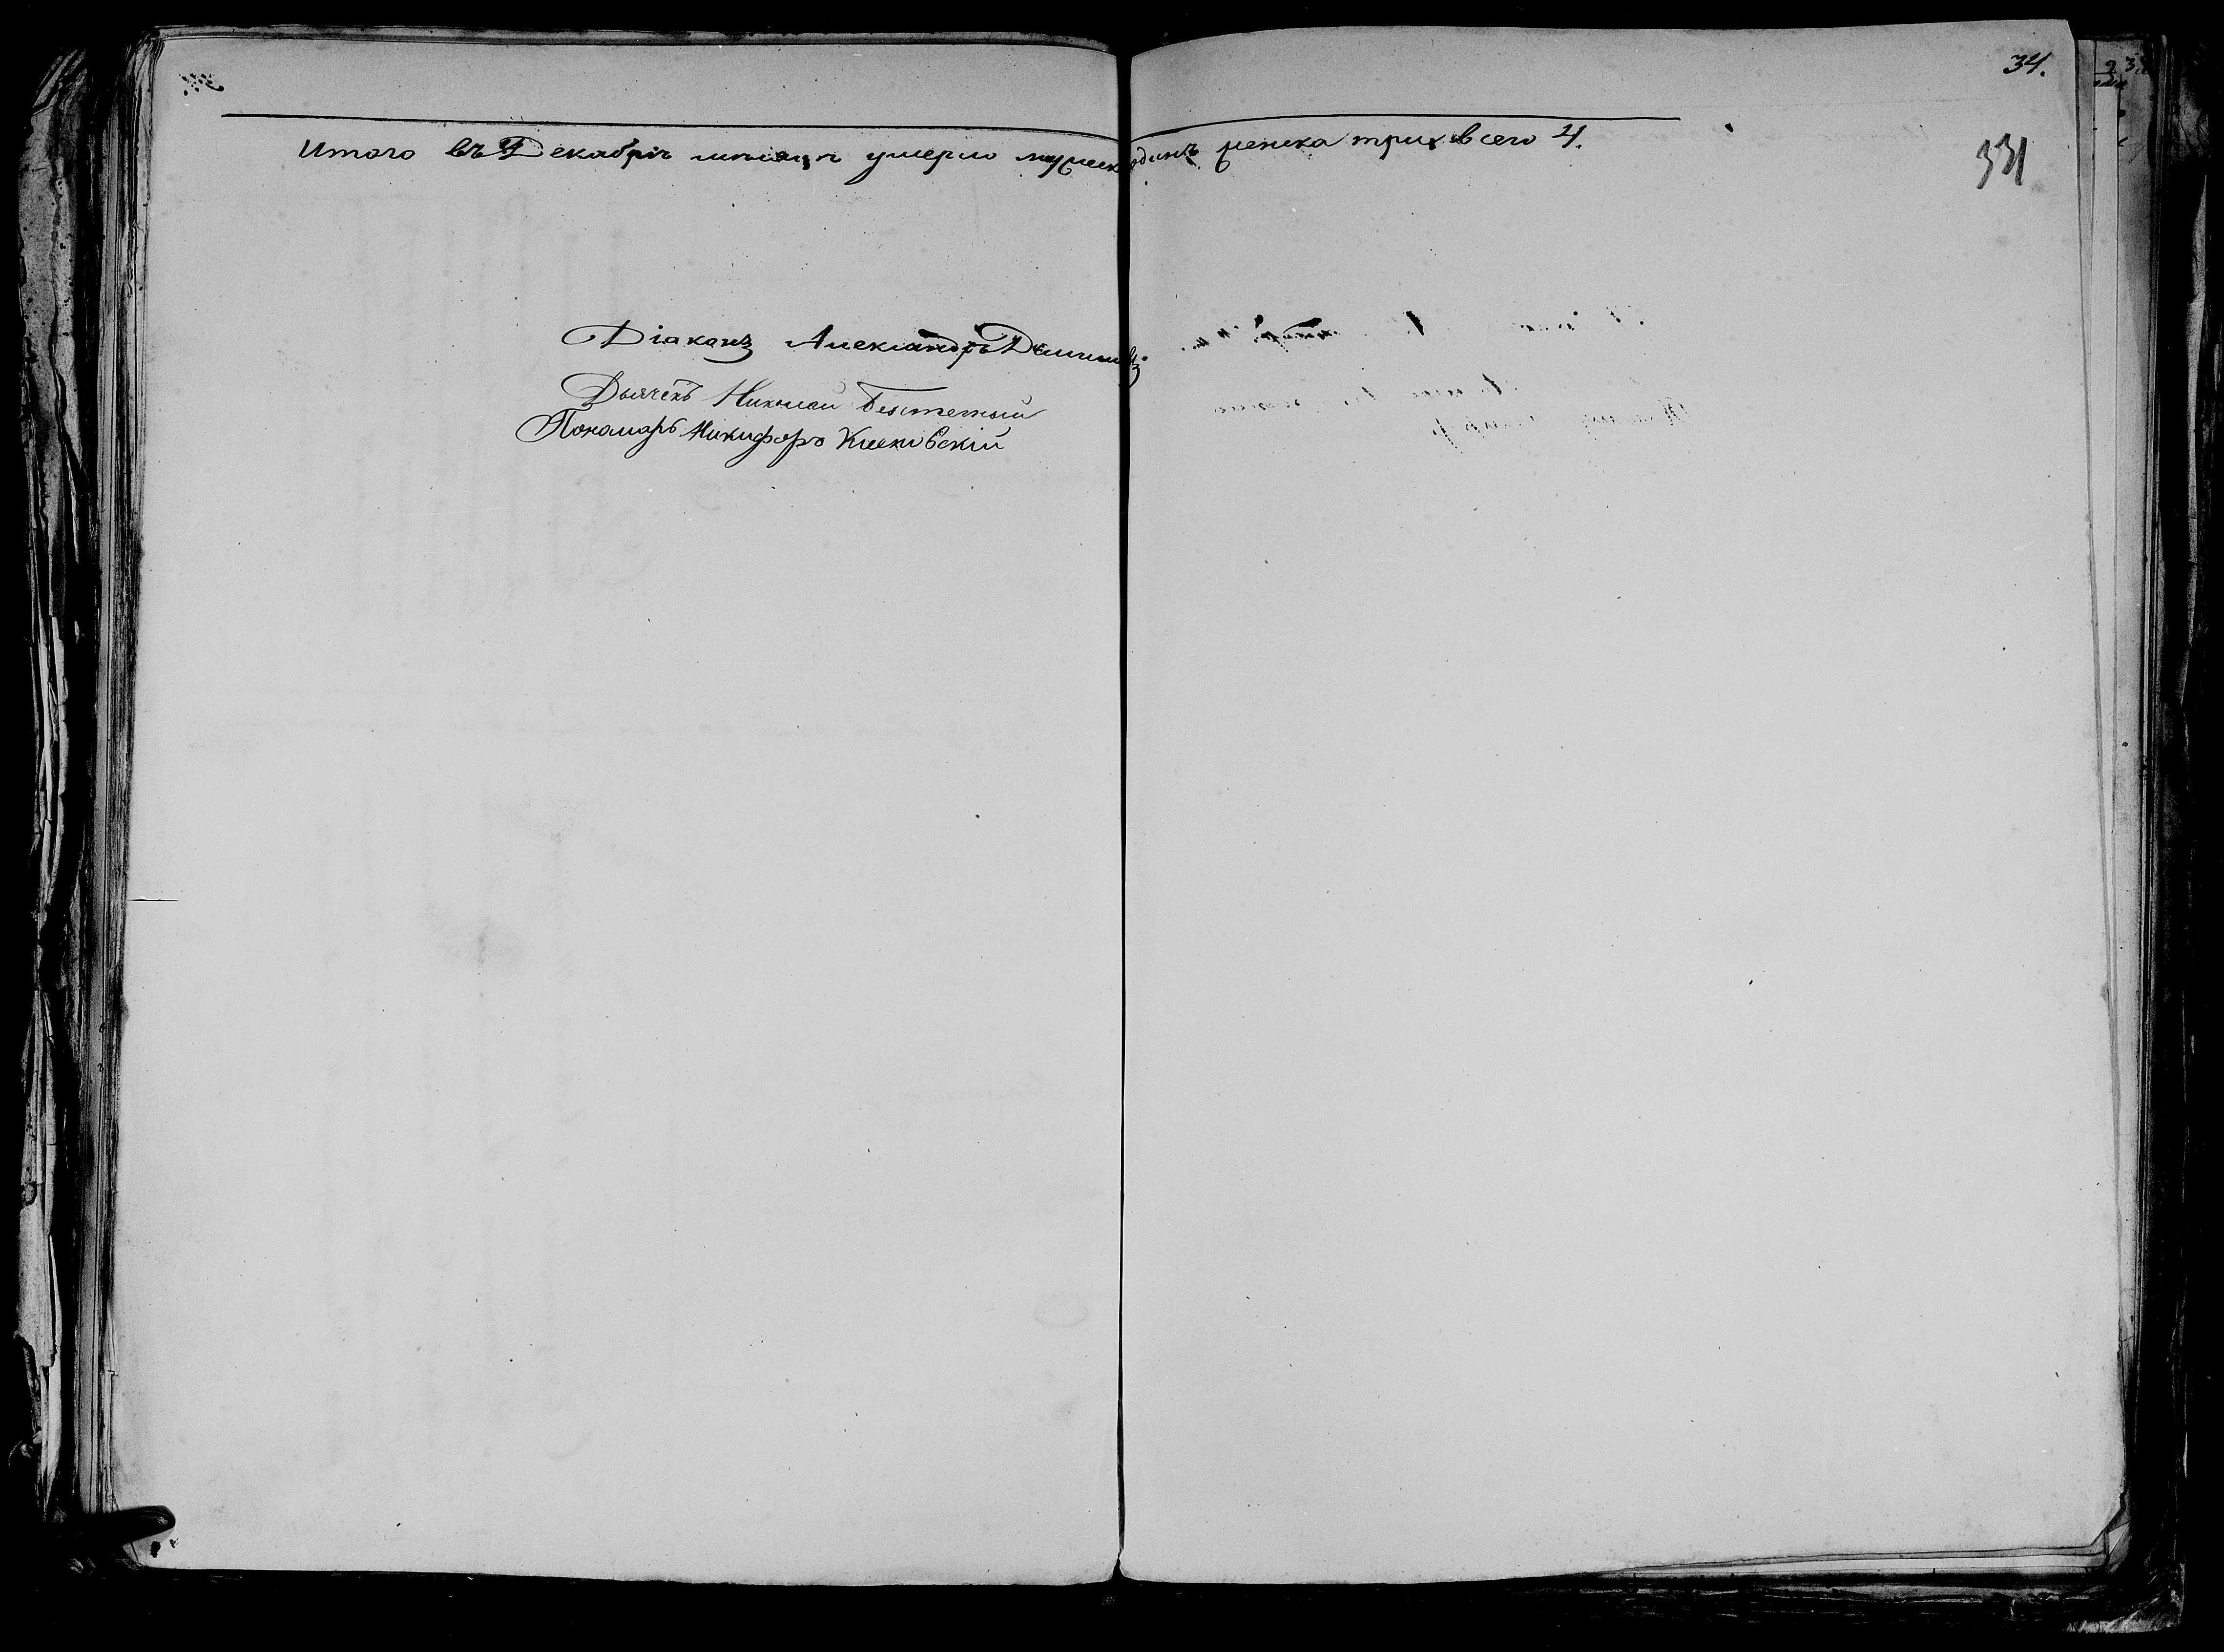 34.
331
Итого въ Декабрѣ мѣсяцѣ умерло мужеска одинъ женска три, всего 4.
Діаконъ Александръ
Дьячекъ Николай
Пономарь Никифоръ